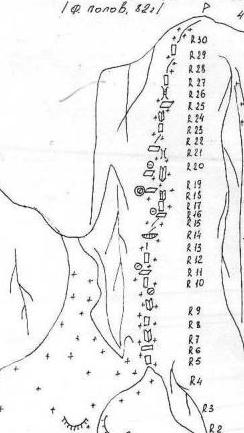 /Ф. попов, 82г/
P
4
R30
R29
R28
R27
R26
R25
R24
R23
R22
R21
R20
R19
R18
R17
R16
R15
R14
R13
R12
R11
R10
R9
R8
R7
R6
R5
R4
R3
R2